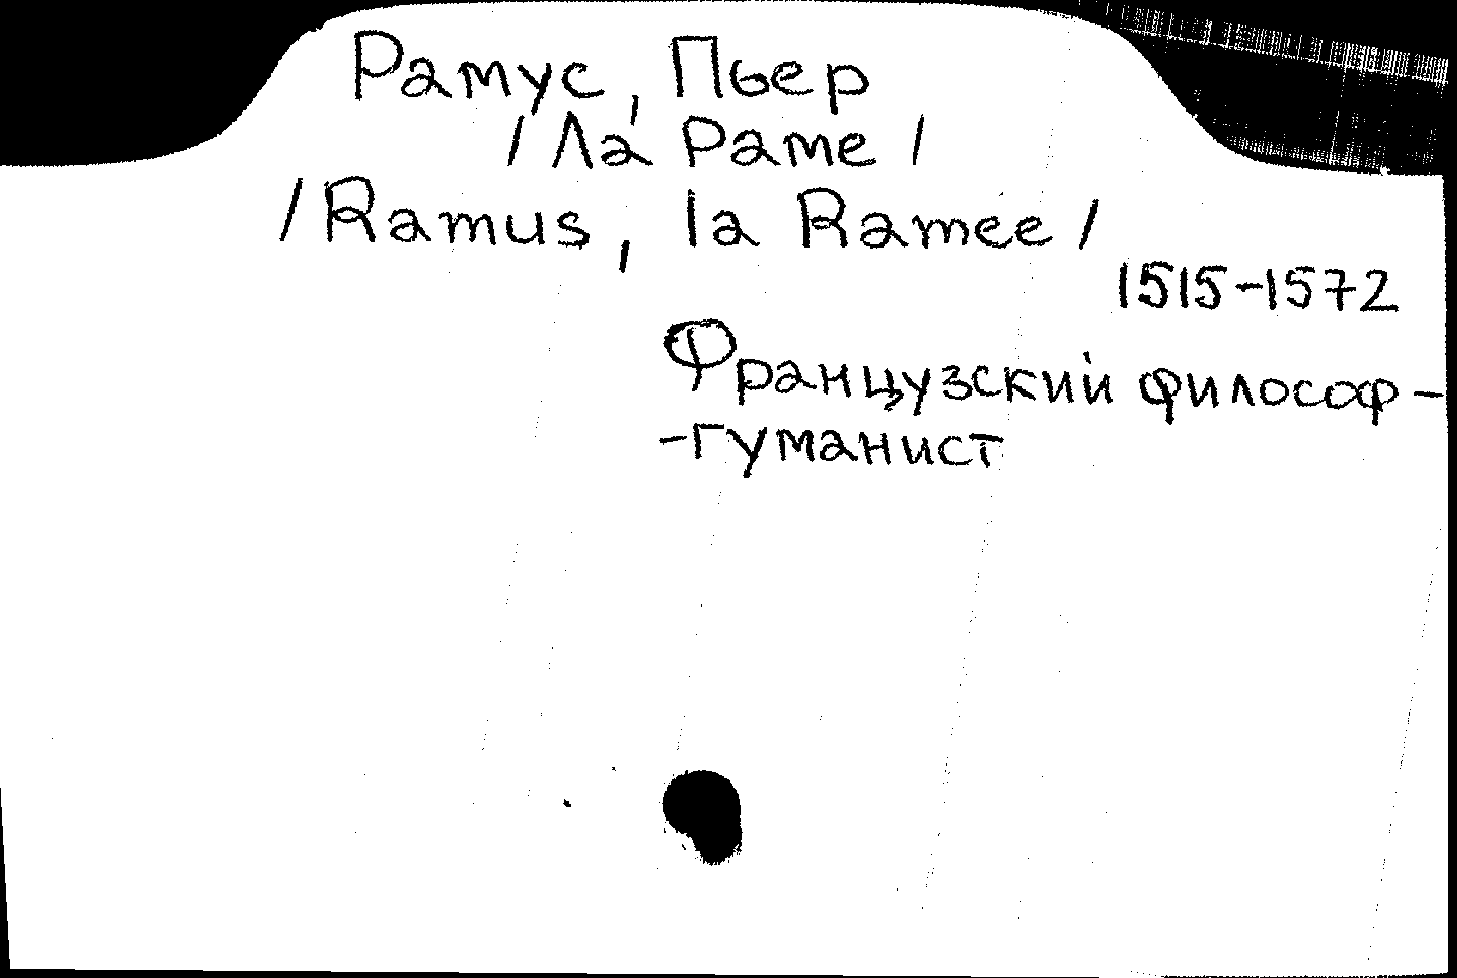 Рамус, Пьер
/Ла Раме/
/Ramus, la Ramee/
1515-1572
Французский философ-
-гуманист